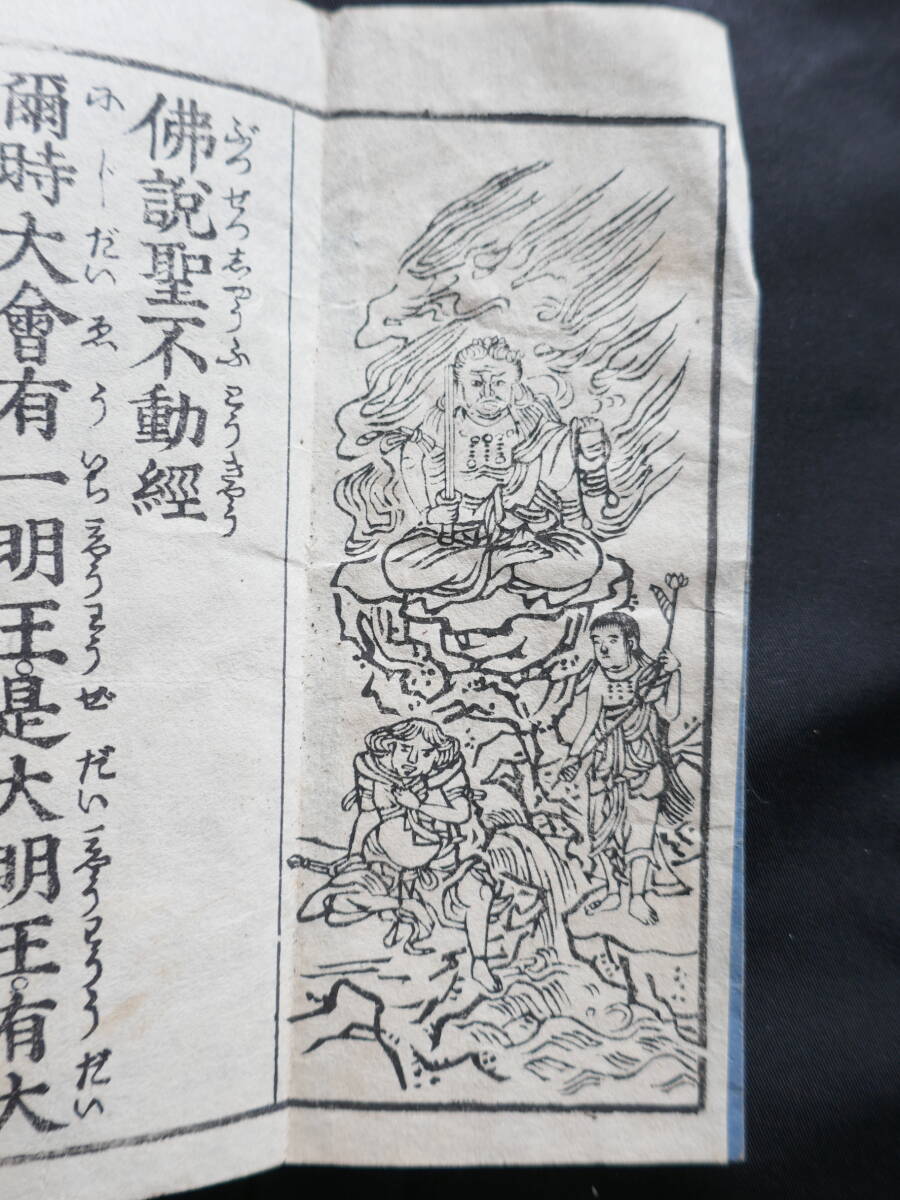 佛說聖不動經
ぶつせつしやうふどうきやう
爾時大會有一明王。是大明王。有大
にじだいゑういちみやうわうぜだいみやうわううだい